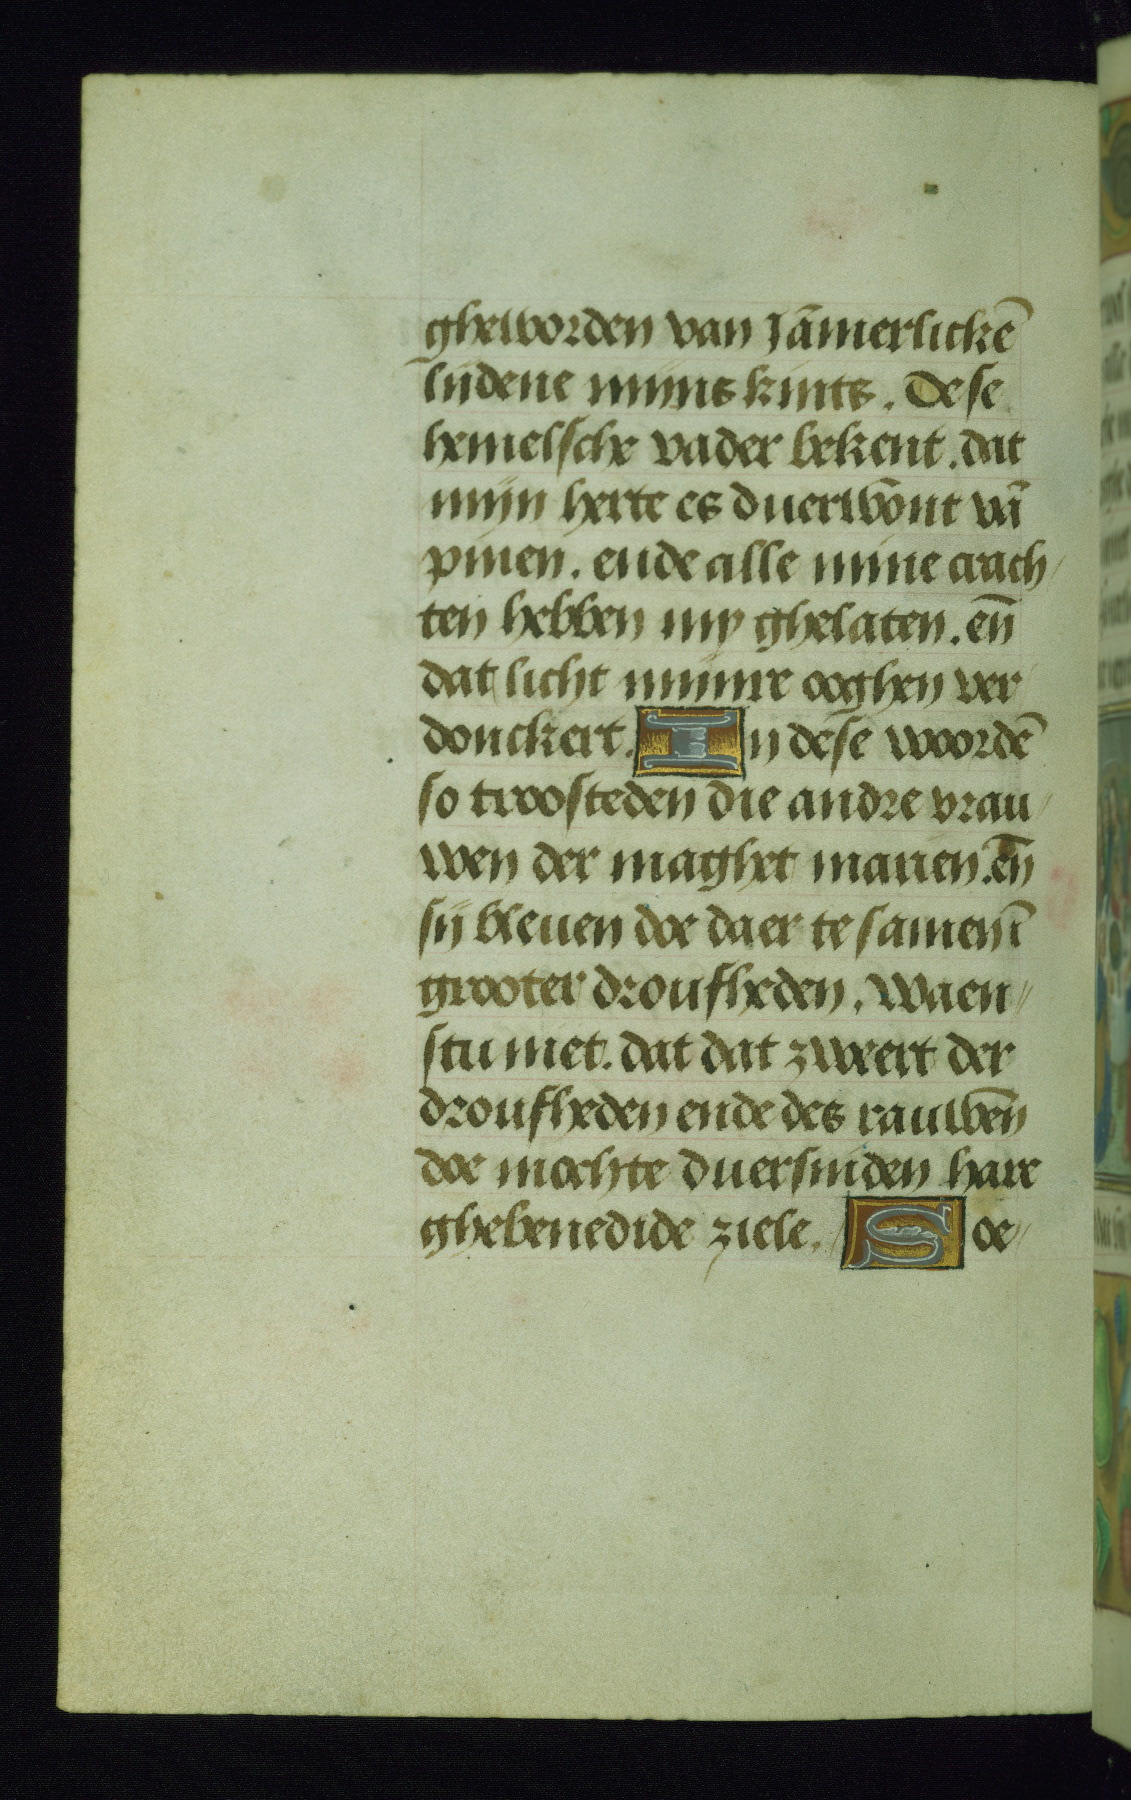 gheworden van Jāmerlickē
lijdene mijns kints. Dese
hemelsche vader bekent. dat
mijn herte es duerwōnt vā
pinen. ende alle mine crach/
ten hebben my ghelaten. eñ
dat licht mijnre ooghen ver/
donckert. In dese woordē
so troosteden die andre vrau/
wen der maghet marien. eñ
sij bleuen doe daer te samen ī
grooter droufheden. Waen//
stu niet. dat dat zweert der
droufheden ende des rauwēn
doe mochte duersniden hare
ghebenedide ziele. Soe/